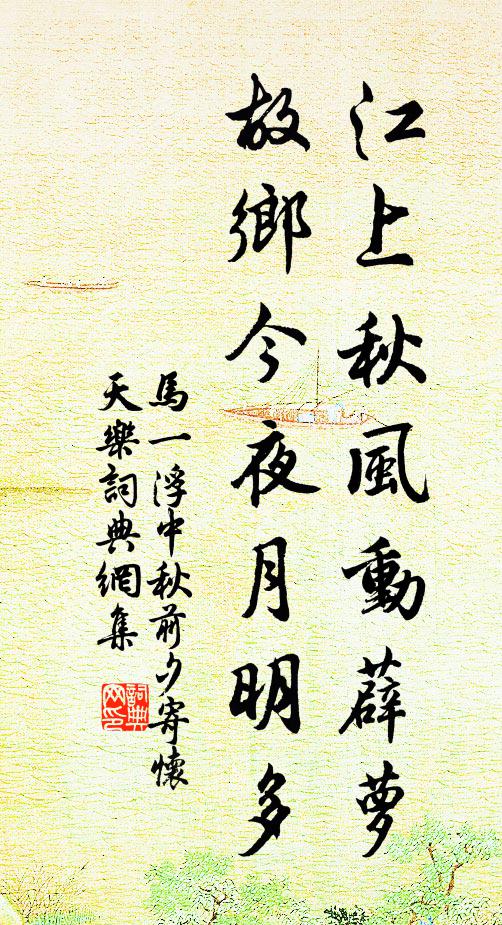 江上秋風動薜萝
故鄉今夜月明多
馬一浮中秋前夕寄懷
天樂詞典網集
詞典
网印